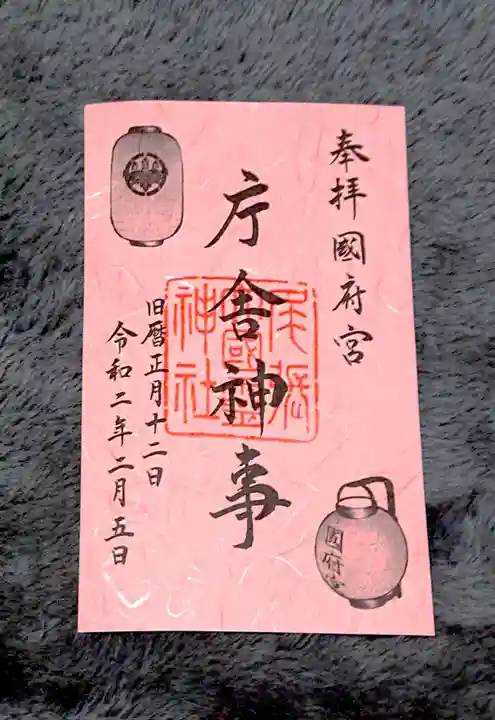 奉拝 國府宮
庁舎神事
旧暦正月十二日
令和二年二月五日
尾張
大國霊
神社
國府宮